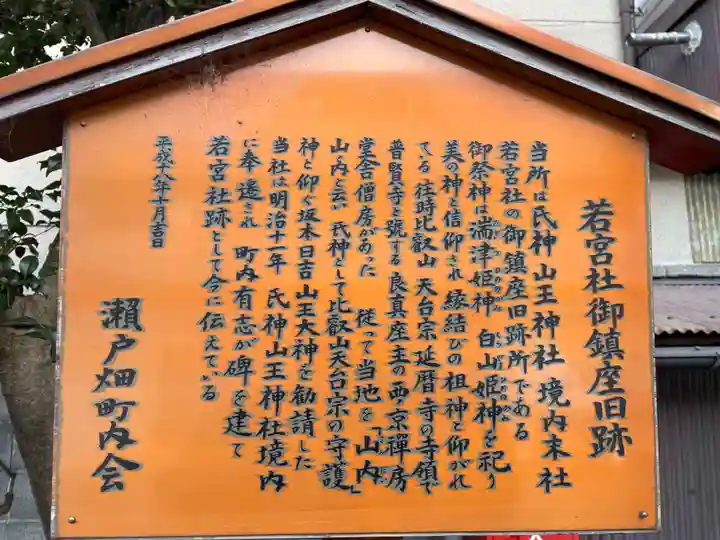 若宮社御鎮座旧跡
当所は氏神山王神社境内末社
若宮社の御鎮座旧跡所である
御祭神は湍津姫神 白山姫神を祀り
美の神と信仰され縁結びの祖神と仰がれ
てる 往時比叡山 天台宗 延暦寺の寺領で
普賢寺と號する 良真座主の西京禅房
堂舎僧房があった 従って当地を「山内」
山ノ内と云い 氏神として比叡山天台宗の守護
神と仰ぐ坂本日吉山王大神を勧請した
当社は明治十一年 氏神山王神社境内
に奉遷され 町内有志が碑を建て
若宮社跡として今に伝えている
平成十八年十月吉日
瀬戸畑町内会